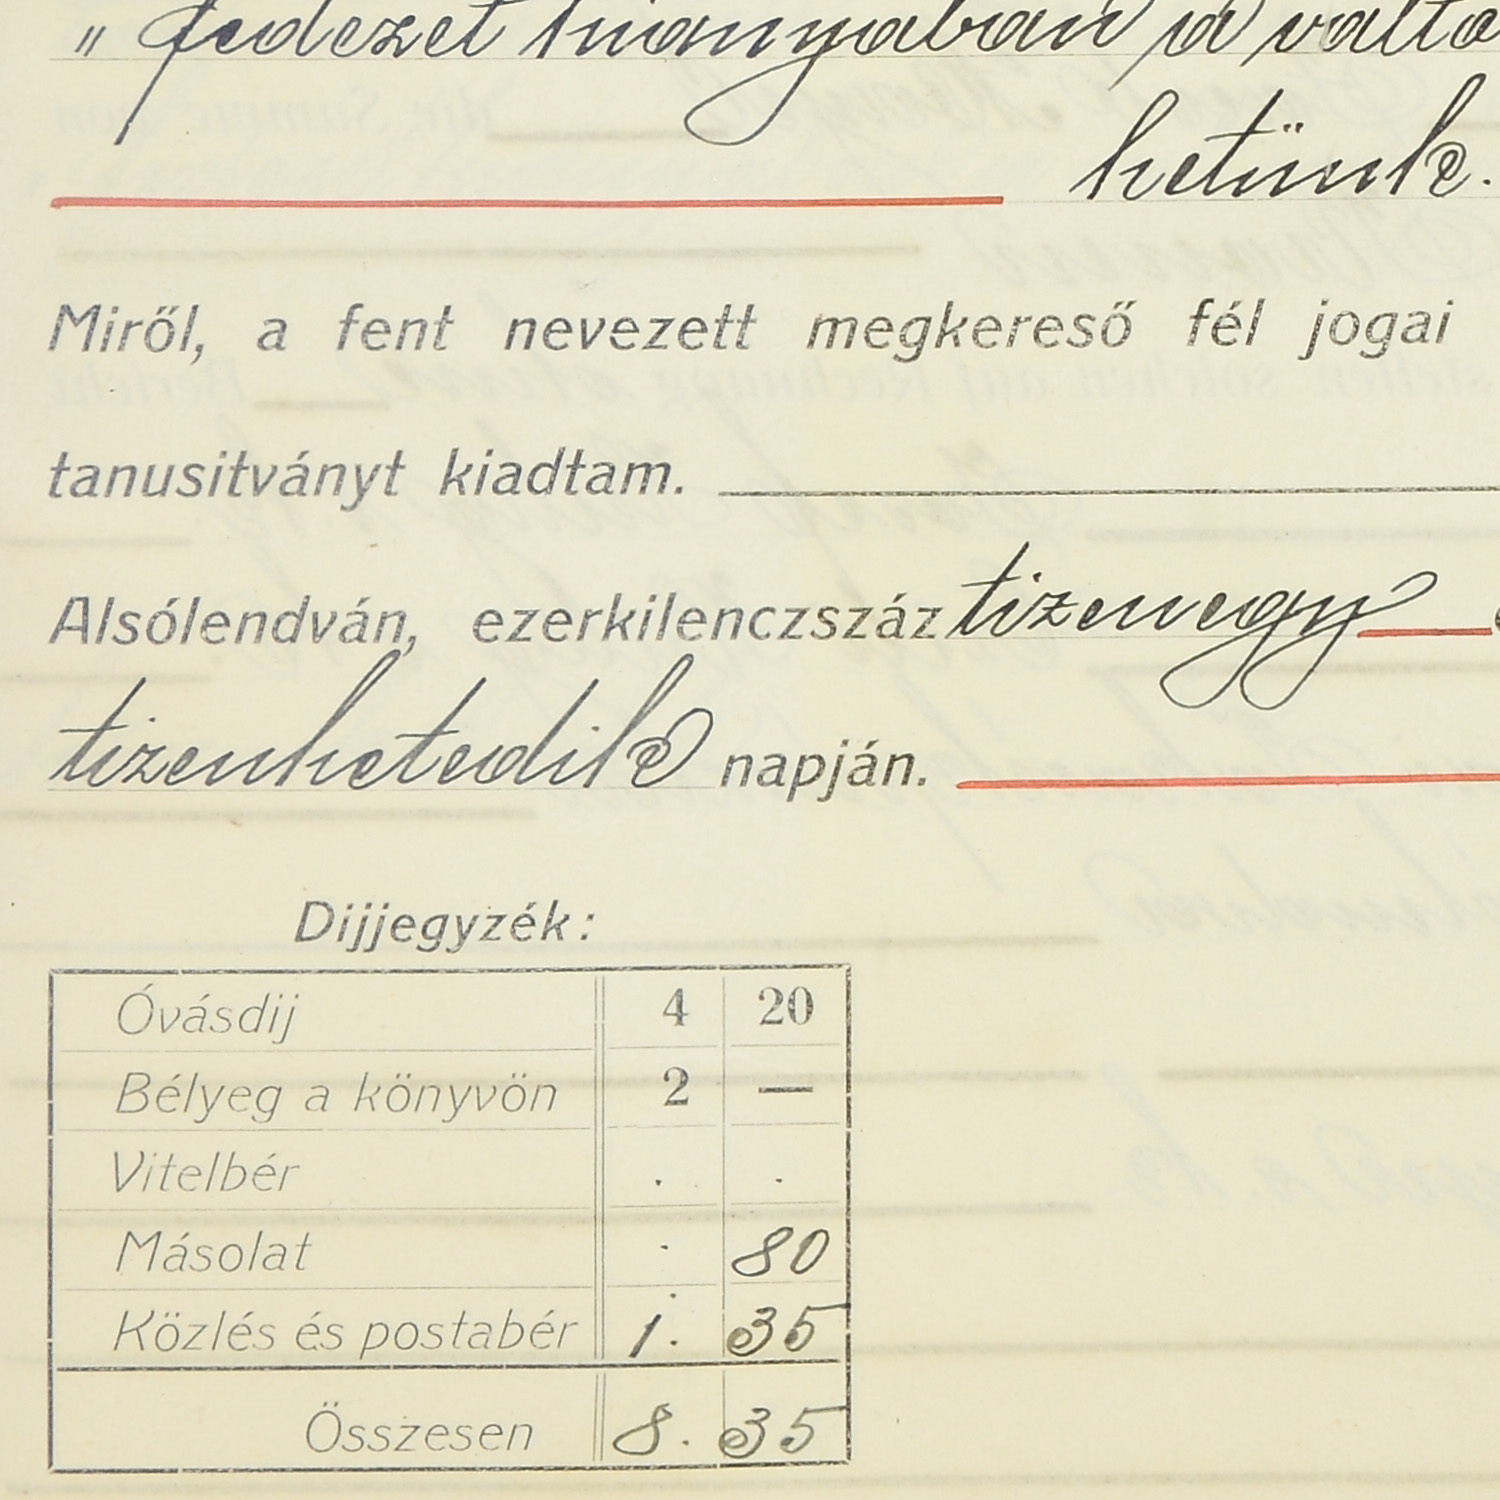 " fedezet hiányában a válto
hetünk.
Miről, a fent nevezett megkereső fél jogai
tanusitványt kiadtam.
Alsólendván, ezerkilenczszáz tizenegy
tizenhetedik napján.
Dijjegyzék:
Óvásdij 4 20
Bélyeg a könyvön 2 —
Vitelbér . .
Másolat . 80
Közlés és postabér 1. 35
Összesen 8. 35